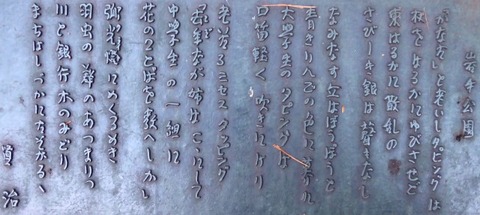 岩手公園
「かなた」と老いしタピングは
杖をはるかにゆびさせど
東はるかに散乱の
さびしき銀は聲もなし
なみなす丘はぼうぼうと
青きりんごの色に暮れ
大学生のタピングは
口笛軽く吹きにけり
老いたるミセスタッピング
去年なが姉はこゝにして
中学生の一組に
花のことばを教へしか
弧光燈にめくるめき
羽虫の群のあつまりつ
川と銀行木のみどり
まちはしづかにたそがるゝ
賢治